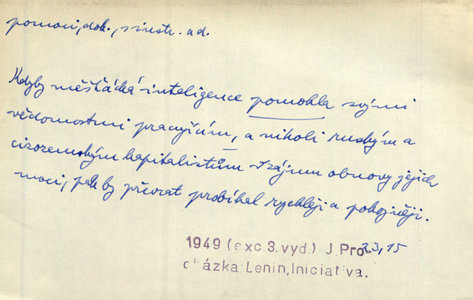 pomoci, dok., instr. ad.
Kdyby měšťácká inteligence pomohla svými
vědomostmi pracujícím, a nikoli ruským a
cizozemským kapitalistům v zájmu obnovy jejich
moci, pak by převrat probíhal rychleji a pokojněji.
1949 (exc. 3. vyd.) J. Pro 23, 15
otázka Lenin, Iniciativa.